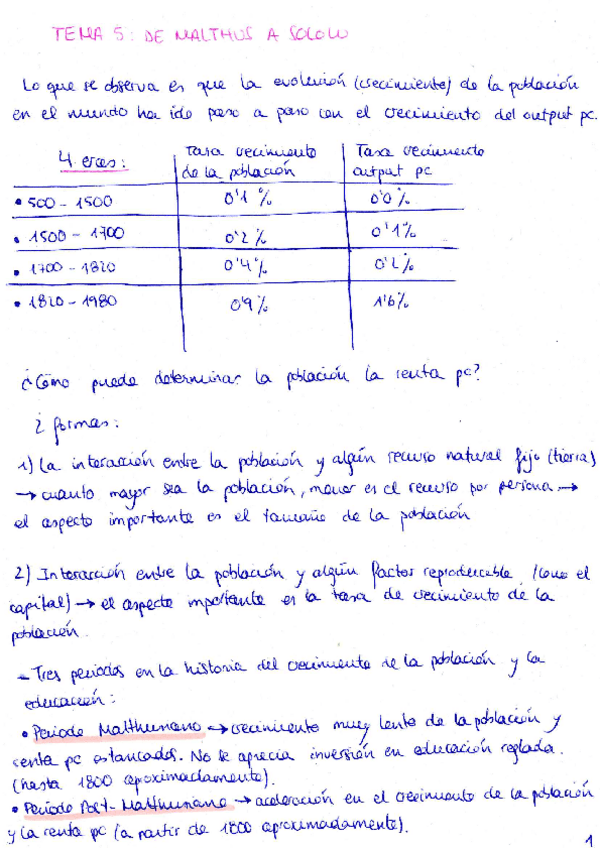 TEMA 5: DE MALTHUS A SOLOW
Lo que se observa es que la evolución (crecimiento) de la población
en el mundo ha ido paso a paso con el crecimiento del output pc.
4 eras: Tasa crecimiento de la población Tasa crecimiento output pc
• 500 - 1500 0'1 % 0'0 %
• 1500 - 1700 0'2 % 0'1 %
• 1700 - 1820 0'4 % 0'2 %
• 1820 - 1980 0'9 % 1'6 %
¿Cómo puede determinar la población la renta pc?
2 formas:
1) La interacción entre la población y algún recurso natural fijo (tierra)
→ cuanto mayor sea la población, menor es el recurso por persona →
el aspecto importante es el tamaño de la población
2) Interacción entre la población y algún factor reproducible (como el
capital) → el aspecto importante es la tasa de crecimiento de la
población.
- Tres periodos en la historia del crecimiento de la población y la
educación:
• Periodo Malthusiano → crecimiento muy lento de la población y
renta pc estancados. No se aprecia inversión en educación reglada.
(hasta 1800 aproximadamente).
• Periodo Post-Malthusiano → aceleración en el crecimiento de la población
y la renta pc (a partir de 1800 aproximadamente).
1